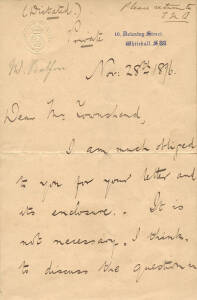 (Dictated.)
Please return to
Private
10, Downing Street,
Whitehall, S.W.
Nov: 28th 1896.
Dear Mr. Townshend,
I am much obliged
to you for your letter and
its enclosure. It is
not necessary, I think,
to discuss the question